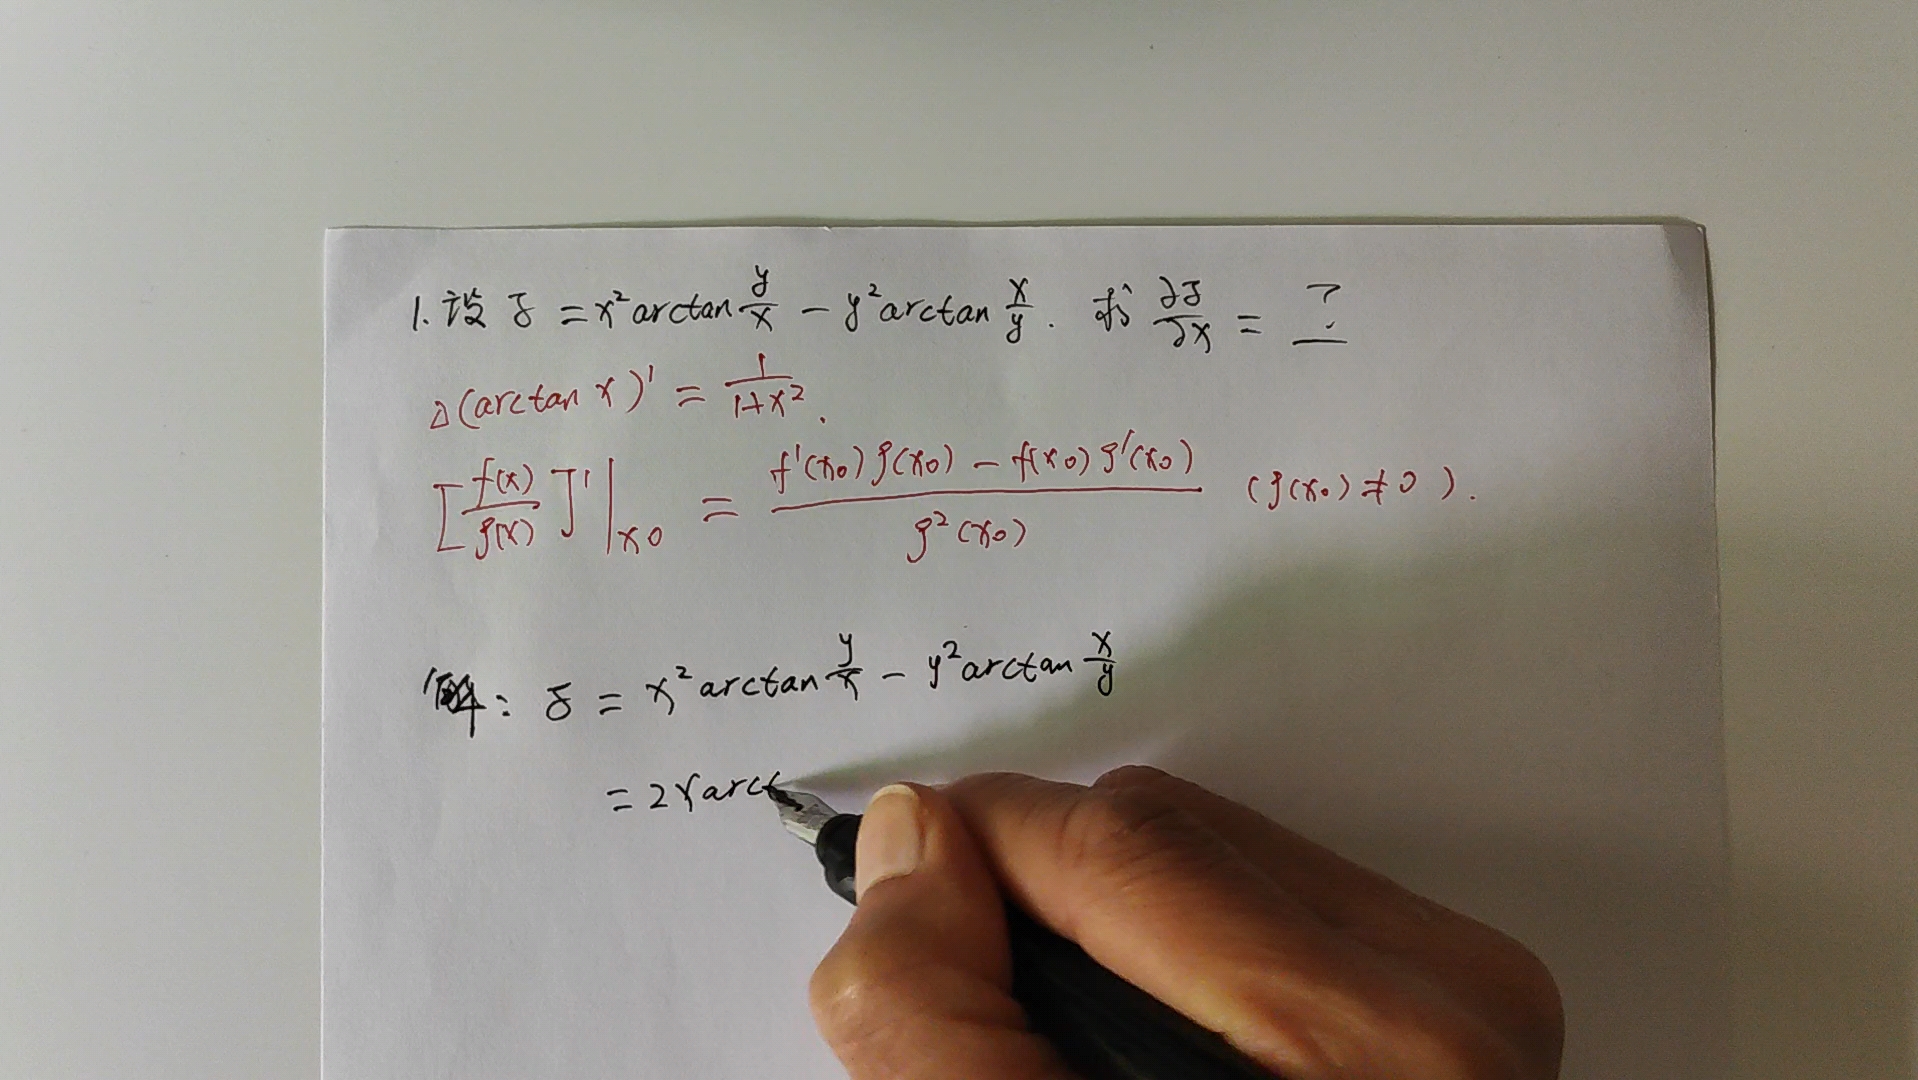 1. 设 z = x² arctan y/x - y² arctan x/y. 求 ∂z/∂x = ?
△(arctan x)' = 1/1+x².
[f(x)/g(x)]'|x0 = f'(x0)g(x0) - f(x0)g'(x0)/g²(x0) (g(x0)≠0).
解: z = x² arctan y/x - y² arctan x/y
= 2x arct